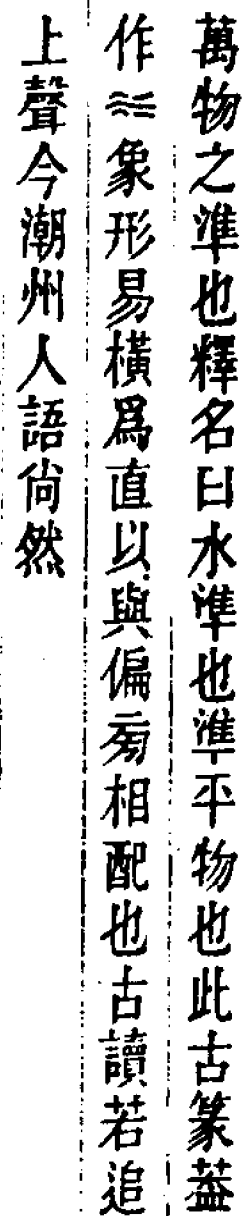 萬物之準也釋名曰水準也準平物也此古篆葢
作𝌀象形易橫爲直以與偏㫄相配也古讀若追
上聲今潮州人語尙然